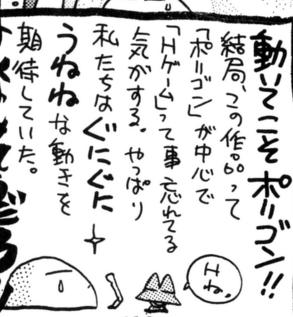 動いてこそポリゴン!!
結局、この作品って
「ポリゴン」が中心で
「Hゲーム」って事忘れてる
気がする。やっぱり
私たちはぐにぐに
うねねな動きを
期待していた。
Hね。